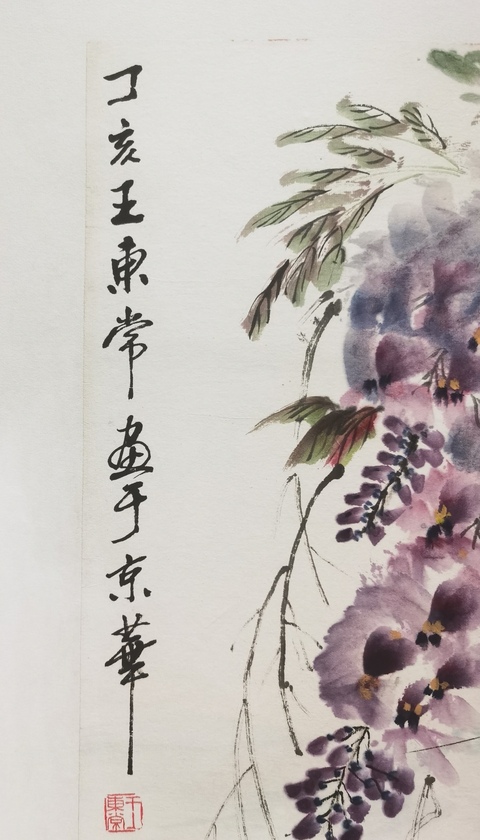 丁亥王東常畫于京華
王東常